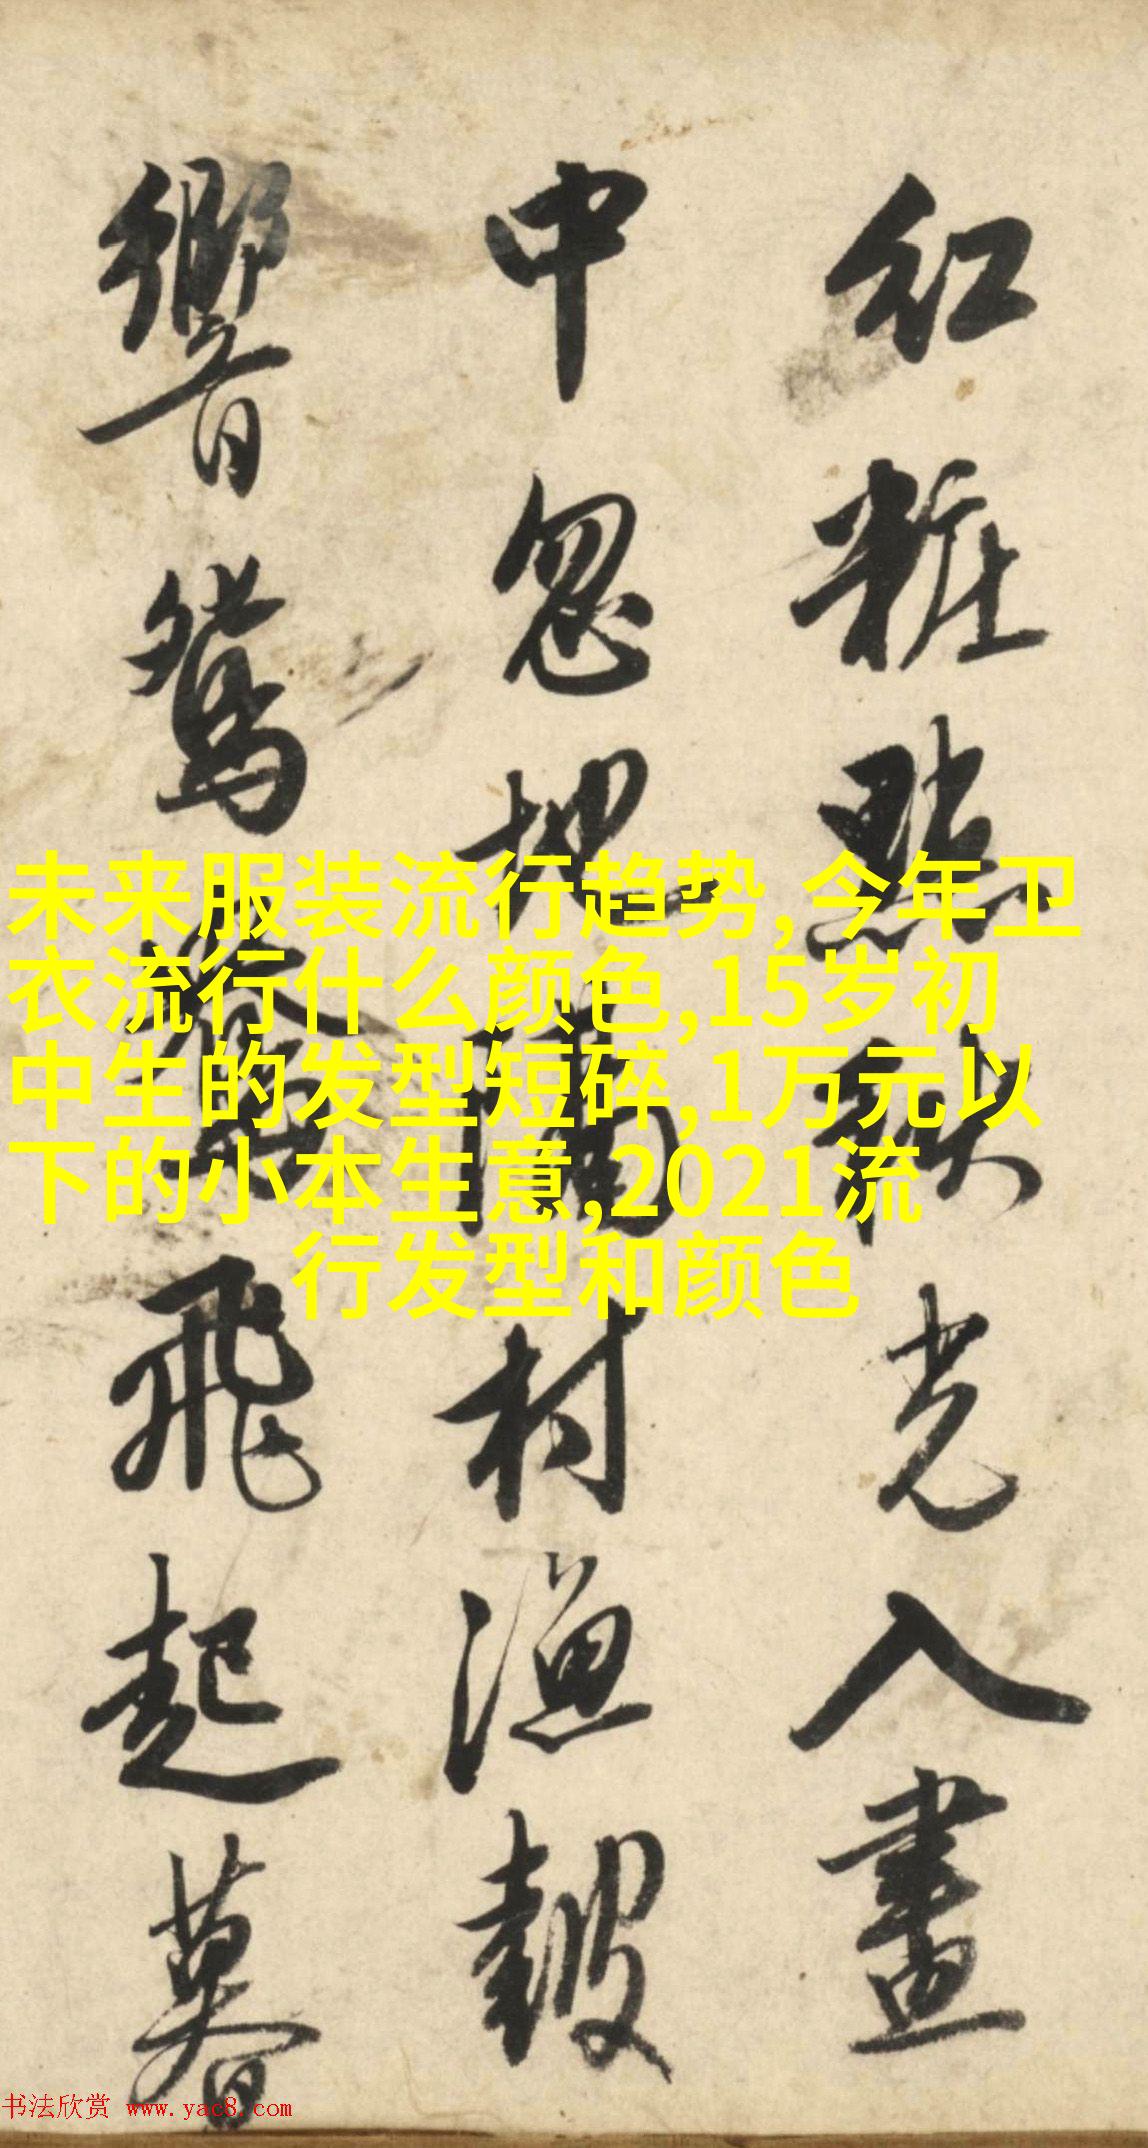 紅粧點秋光入畫
中忽地村漁鼓
響鴛鴦飛起暮
未来服装流行趋势,今年卫
衣流行什么颜色,15岁初
中生的发型短碎,1万元以
下的小本生意,2021流
行发型和颜色
书法欣赏 www.yac8.com